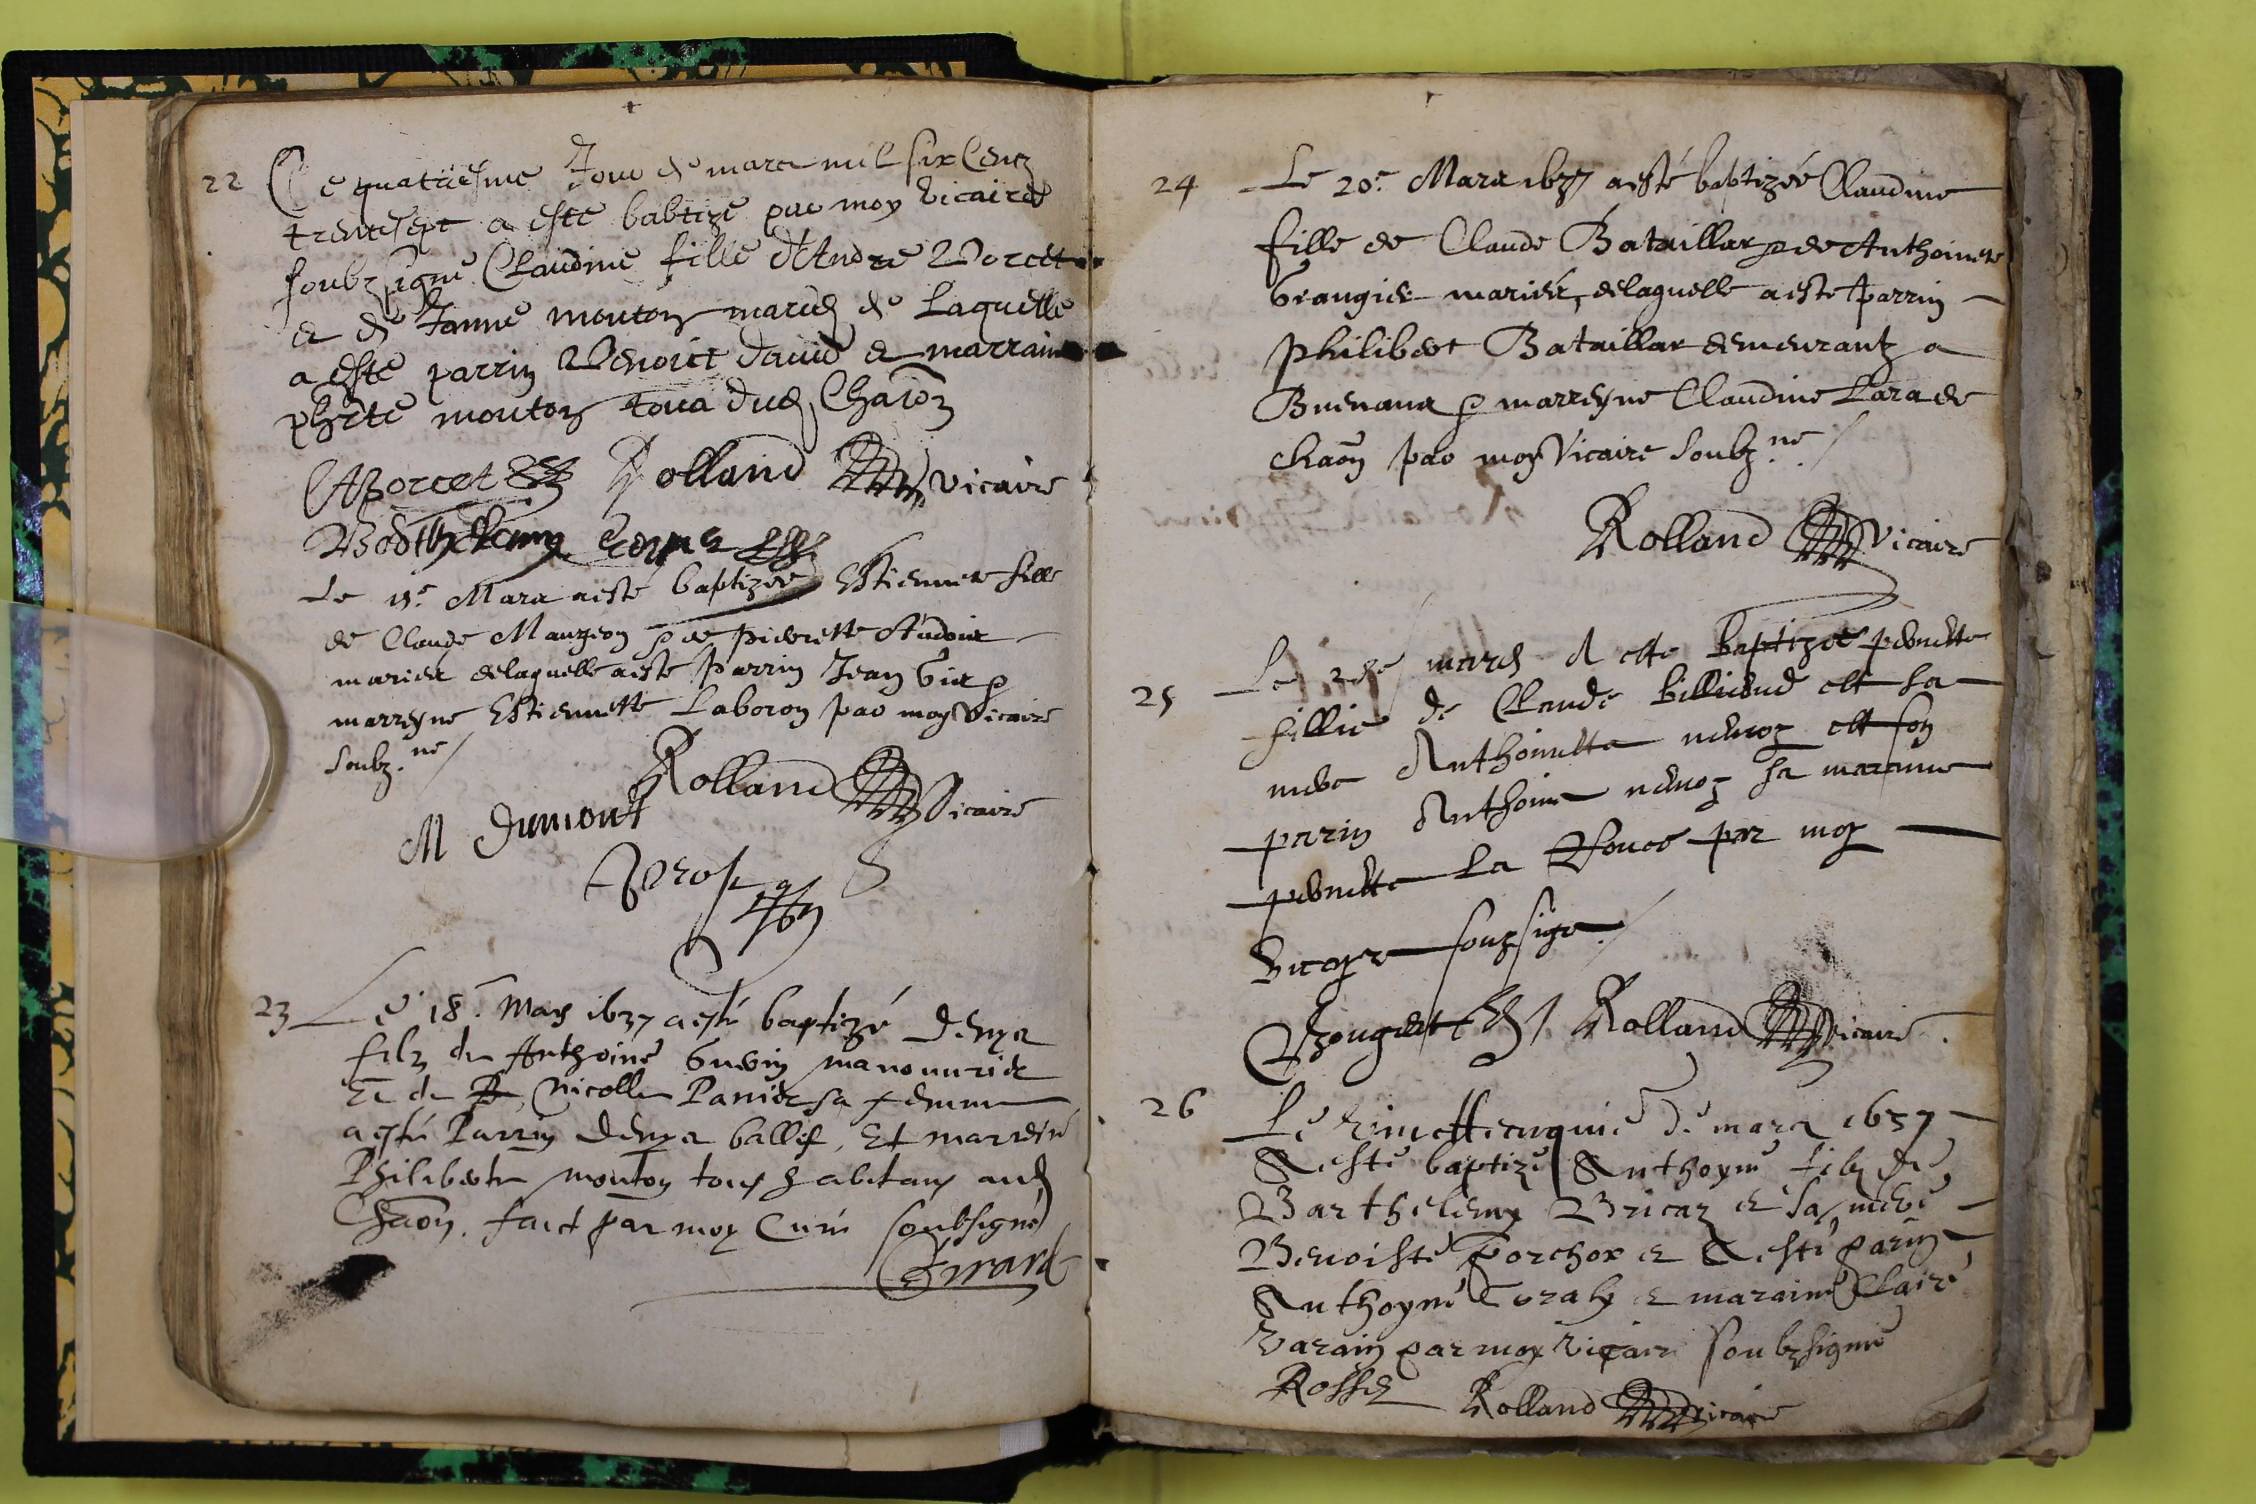 22 Ce quatriesme Jour de mars mil six Centz
trentesept a este babtize par moy vicaire
soubzsigne Claudine fille d'Andre Porcet
et de Janne mouton mariez de Laquelle
a este parrin Benoict david et marraine
phlte mouton tous dud Chaôn
APorcet Rolland vicaire
Le 15e Mars a esté baptizée Estiennete fille
de Claude Mauzeon & de pierrette
mariez delaquelle a este parrin Jean &
marreyne Estiennette Laboron par moy Vicaire
soubz.ne
Rolland Vicaire
M Dumont
23 Le 18e. Mars 1637 a esté baptizé Denys
filz de Anthoine manouvrier
Et de Nicolle Panier sa femme
a esté Parrin Denys ballif, Et marreine
Philiberte Mouton tous habitans aud
Chaôn. faict par moy Curé soubsigné
Girard
24 Le 20e. Mars 1637 a esté baptizée Claudine
fille de Claude Bataillar & de Anthoinete
Grangier mariés, delaquelle a este parrin
Philibert Bataillar demeurantz a
Buenans & marreyne Claudine Lara de
chaôn par moy Vicaire soubz.ne
Rolland Vicaire
25 Le mars A este baptizée pernette
fillie de Claude billioud et sa
mere Anthoinette nevoz et son
parin Anthoine nevoz sa maraine
pernette La par moy
soupsigne
Rolland Vicaire
26 Le de mars 1637
A esté baptizé Anthoyne filz de
Barthelemy Bricaz et sa mere
Benoiste Porchor et A esté parin
Anthoyne et maraine Claire
Varain par moy vicaire soubzsigne
Rolland vicaire